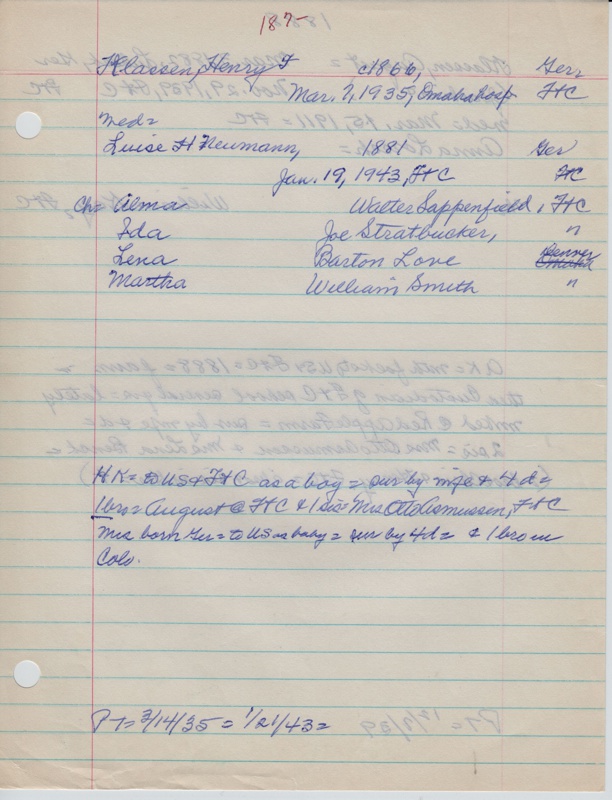 187-
Klassen, Henry F c1866, Ger
Mar. 7, 1935, Omaha hosp FtC
med=
Luise H Neumann, 1881 Ger
Jan. 19, 1943, FtC FtC
Ch= Alma Walter Sappenfield, FtC
Ida Joe Stratbucker, "
Lena Barton Love Denver Omaha
Martha William Smith "
HK= to US & FtC as a boy = sur by wife & 4d=
1 bro= August @ FtC & 1 sis= Mrs Otto Asmussen, FtC
Mrs born Ger= to US as baby= sur by 4d= & 1 bro in
Colo.
PT= 3/14/35= 1/21/43=